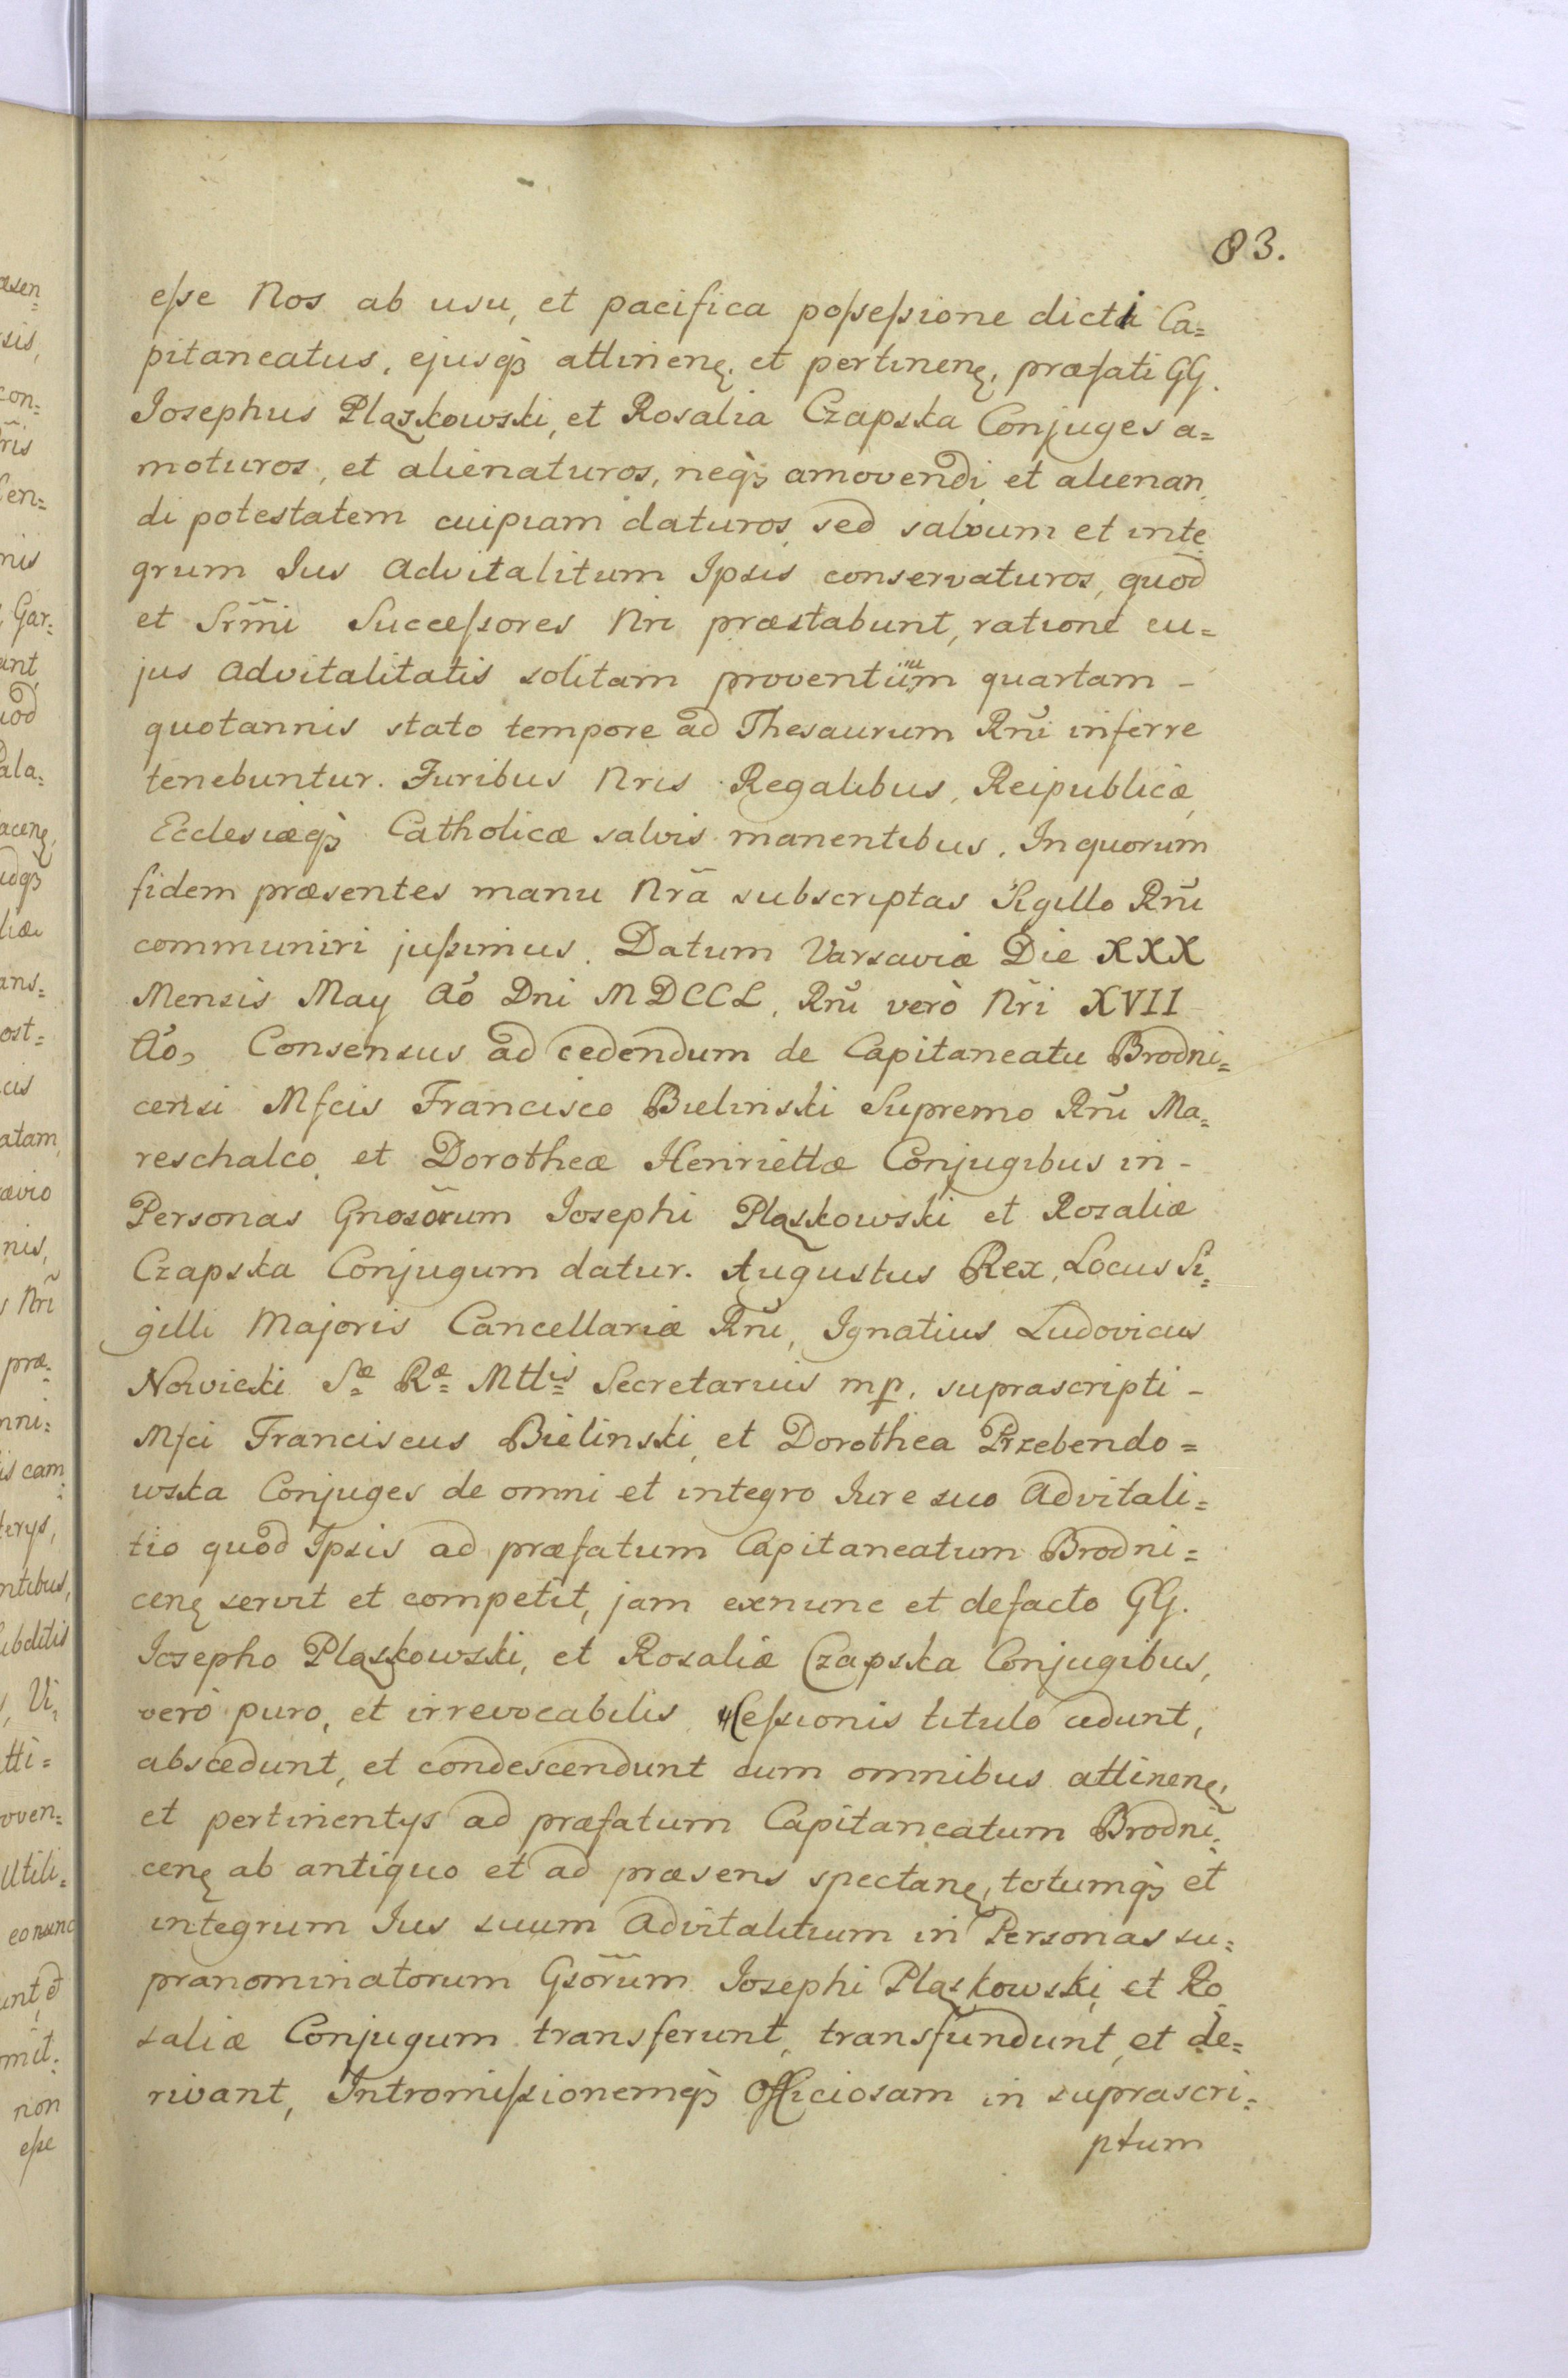 83.
eſse Nos ab usu, et pacifica poſseſsione dicti Ca=
pitaneatus, ejusqꝫ attinenę. et pertinenę, præfati GG.
Josephus Pląskowski, et Rosalia Czapska Conjuges a=
moturos, et alienaturos, neqꝫ amovendi et alienan,
di potestatem cuipiam daturos, sed salvum et inte
grum Jus Advitalitum Ipsis conservaturos, quod
et Srm̃i Succeſsores Nri præstabunt, ratione cu=
jus Advitalitatis solitam proventuum quartam -
quotannis stato tempore ad Thesaurum Rñi inferre
tenebuntur. Juribus Nris Regalibus, Reipublicæ,
Ecclesiæqꝫ Catholicæ salvis manentibus. In quorum
fidem præsentes manu Nrã subscriptas Sigillo Rñi
communiri juſsimus. Datum Varsaviæ Die XXX
Mensis May Aó Dni MDCCL, Rñi verò Nr̃i XVII
Aó, Consensus ad cedendum de Capitaneatu Brodni=
censi Mfcis Francisco Bielinski Supremo Rñi Ma=
reschalco, et Dorotheæ Henriettæ Conjugibus in -
Personas Gnosõrum Josephi Pląskowski et Rosaliæ
Czapska Conjugum datur. Augustus Rex, Locus Si=
gilli Majoris Cancellariæ Rñi, Ignatius Ludovicus
Nowicki Sæ Ræ Mttis Secretarius mp. suprascripti -
Mfci Franciscus Bielinski, et Dorothea Przebendo=
wska Conjuges de omni et integro Jure suo Advitali=
tio quod Ipsis ad præfatum Capitaneatum Brodni=
cenę servit et competit, jam exnunc et defacto GG.
Josepho Pląskowski, et Rosaliæ Czapska Conjugibus,
verò puro, et irrevocabilis Ceſsionis titulo cedunt,
abscedunt, et condescendunt cum omnibus attinenę,
et pertinentys ad præfatum Capitaneatum Brodni=
cenę ab antiquo et ad præsens spectanę, totumqꝫ et
integrum Jus suum Advitalitium in Personas su=
pranominatorum Gsor̃um Josephi Pląskowski, et Ro
saliæ Conjugum transferunt, transfundunt, et de=
rivant, Intromiſsionemqꝫ Officiosam in suprascri=
ptum